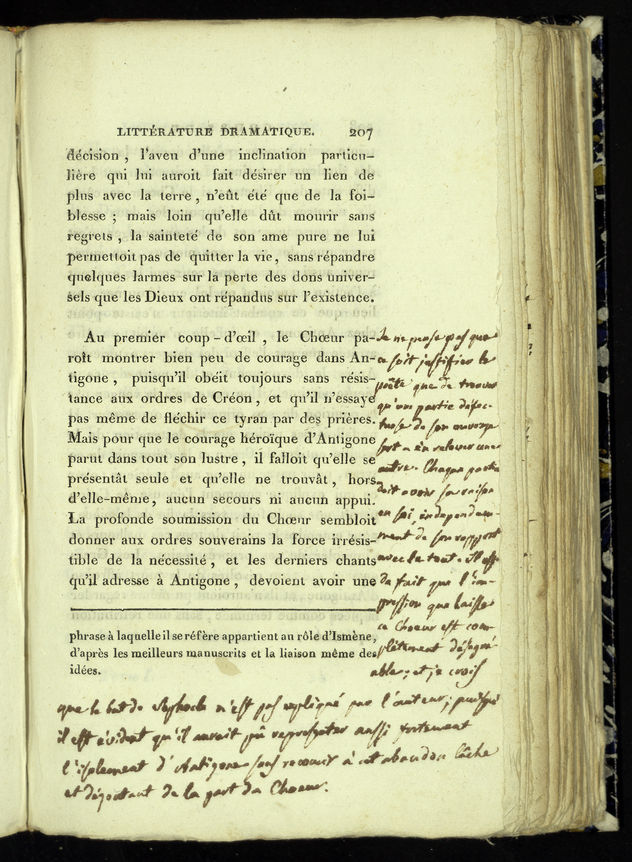 LITTÉRATURE DRAMATIQUE. 207
décision , l'aveu d'une inclination particu-
lière qui lui auroit fait désirer un lien de
plus avec la terre , n'eût été que de la foi-
blesse ; mais loin qu'elle dût mourir sans
regrets , la sainteté de son ame pure ne lui
permettoit pas de quitter la vie, sans répandre
quelques larmes sur la perte des dons univer-
sels que les Dieux ont répandus sur l'existence.
Au premier coup-d'œil , le Chœur pa-
roît montrer bien peu de courage dans An-
tigone , puisqu'il obéit toujours sans résis-
tance aux ordres de Créon , et qu'il n'essaye
pas même de fléchir ce tyran par des prières.
Mais pour que le courage héroïque d'Antigone
parut dans tout son lustre , il falloit qu'elle se
présentât seule et qu'elle ne trouvât , hors
d'elle-même, aucun secours ni aucun appui.
La profonde soumission du Chœur sembloit
donner aux ordres souverains la force irrésis-
tible de la nécessité , et les derniers chants
qu'il adresse à Antigone , devoient avoir une
phrase à laquelle il se réfère appartient au rôle d'Ismène,
d'après les meilleurs manuscrits et la liaison même des
idées.
Je ne pense pas que
ce soit justifier le
poëte que de trouver
qu'une partie défec-
tueuse de son ouvrage
sert à en relever une
autre. Chaque partie
doit avoir sa raison
en soi, independam-
ment de son rapport
avec le tout. Il est
de fait que l'im-
pression que laisse
ce Choeur est com-
plètement désagré-
able; et je crois
que le but de Sophocle n'est pas expliqué par l'auteur; puisqu'
il est évident qu'il auroit pû representer aussi fortement
l'isolement d'Antigone sans recourir à cet abandon lâche
et dégoutant de la part du Choeur.